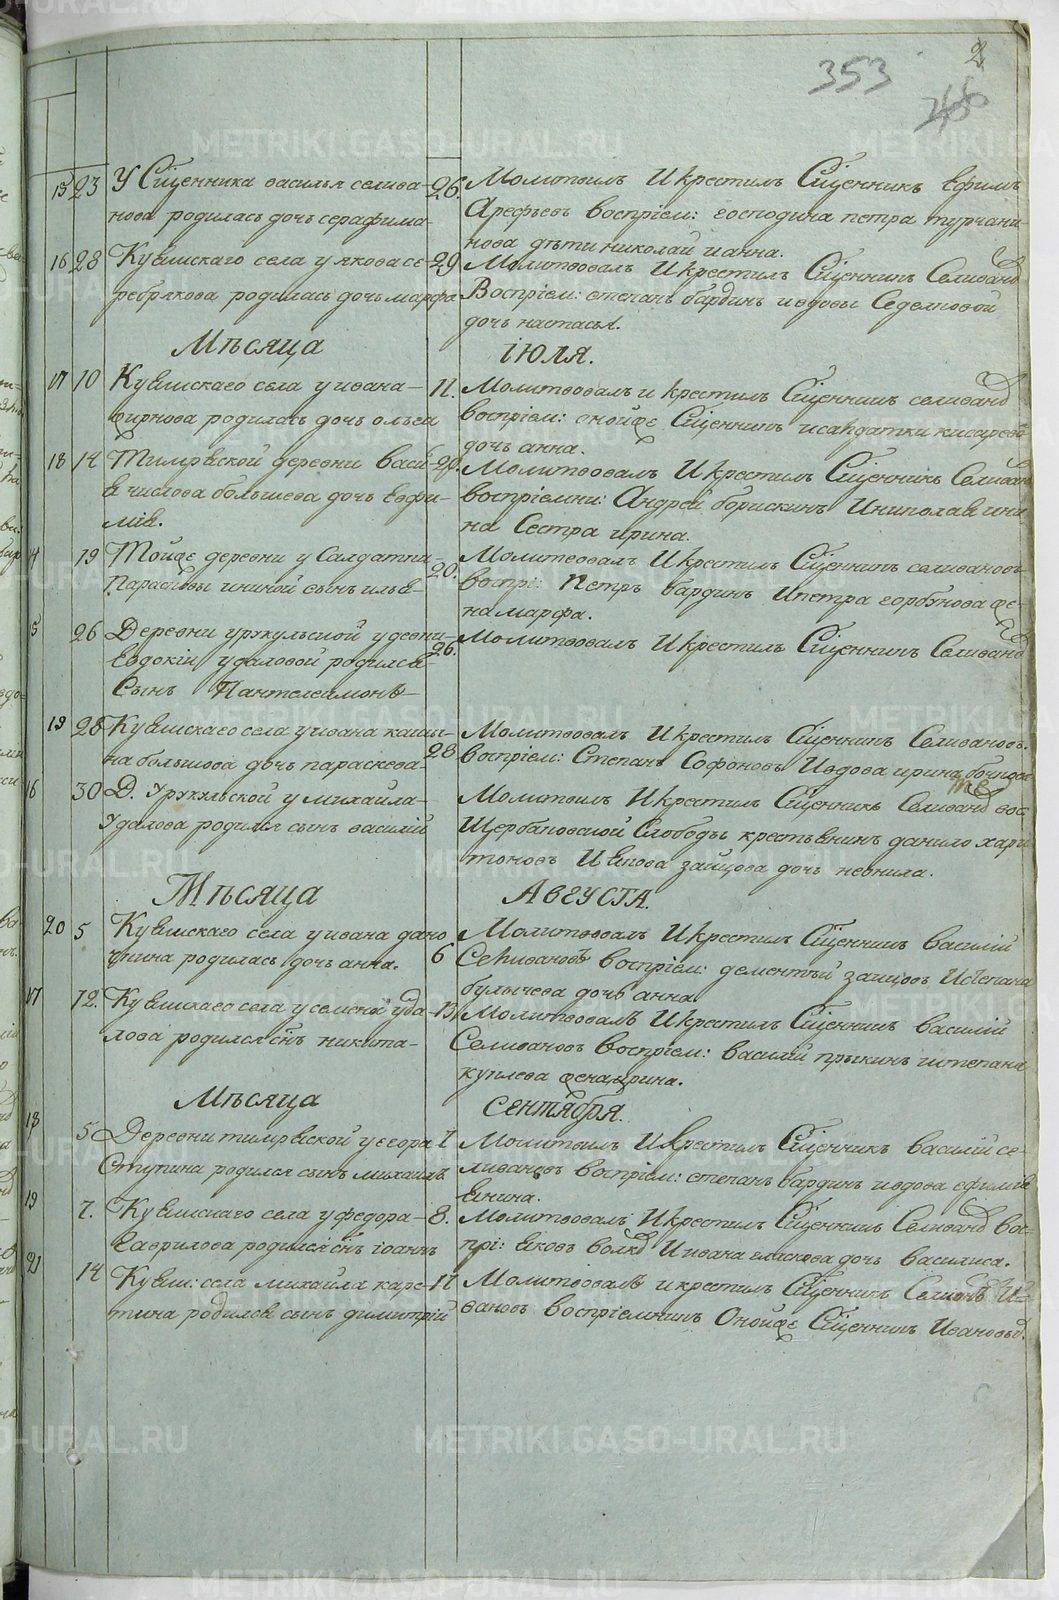 2
353
У Сщенника василья селива-
нова родилась дочь серафима-
Молитвилъ И крестилъ Сщенникъ Ефимъ
Арефьевъ воспрiем: господина петра турчани
нова дѣти николай и анна.
15 23 26.
16 28 Кувшскаго села у якова се- 29
ребрякова родилась дочь марфа
Молитвовалъ И крестилъ Сщенникъ Селивано
Воспрiем: степанъ бардинъ и вдовы Седелновой
дочь настасья.
Мѣсяца IЮЛЯ.
17 10 Кувшскаго села у ивана- 11.
родилась дочь
Молитвовалъ и крестилъ Сщенникъ селивано
воспрiем: онойже Сщенникъ
дочь анна.
18 14 деревни васи-
числова большева дочь Евфи-
мiя.
Молитвовалъ И крестилъ Сщенникъ Селиван
воспрiемни: Андрей борискинъ
на Сестра ирина.
19 Тойже деревни у Салдатки 20.
парасковьи ининой сынъ илья-
Молитвовалъ И крестилъ Сщенникъ селивановъ
воспрi: Петръ бардинъ И петра горбунова же-
на марфа.
5 26 Деревни у девки 26.
Евдокiи удаловой родился
Сынъ Пантелеимонъ-
Молитвовалъ И крестилъ Сщенникъ Селивано
19 28 Кувшскаго села у ивана 28
на большова дочь параскева-
Молитвовалъ И крестилъ Сщенникъ Селивановъ.
воспрiем: Степанъ Софоновъ И вдова ирина
16 30 Д. у михаила-
Удалова родился сынъ василiй
Молитвилъ И крестилъ Сщенникъ Селивано вос
Щербаковской Слободы крестьянинъ данило хари
тоновъ И якова зайцова дочь неонила.
Мѣсяца АВГУСТА.
20 5 Кувшскаго села у ивана дано 6
родилась дочь анна.
Молитвовалъ И крестилъ Сщенникъ василiй
Селивановъ воспрiем: дементьи зайцовъ И степана
булычева дочь анна
17 12. Кувшскаго села у семена уда- 13
лова родился снъ никита-
Молитвовалъ И крестилъ Сщенникъ василiй
Селивановъ воспрiем: василiй прыкинъ и степана
куплева жена ирина.
Мѣсяца СЕНТЯБРЯ.
18 5 Деревни у егора 7
Ступина родился сынъ михаилъ
Молитвилъ И крестилъ Сщенникъ василiй се-
ливановъ воспрiем: степанъ бардинъ и вдова ефимiя
19 7. Кувшскаго села у федора- 8.
Гаврилова родился снъ iоаннъ
Молитвовалъ И крестилъ Сщенникъ Селивано вос-
прi: яковъ волко И ивана гласкова дочь василиса.
21 14 Кувш: села михаила каре- 17
тина родился сынъ димитрiй
Молитвовалъ и крестилъ Сщенникъ
вановъ воспрiемникъ Онойже Сщенникъ
METRIKI.GASO-URAL.RU